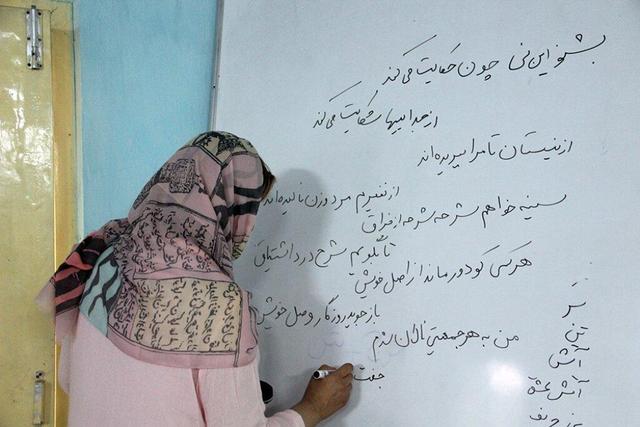 بشنو این نی چون حکایت می‌کند
از جداییها شکایت می‌کند
از نیستان تا مرا ببریده‌اند
از نفیرم مرد و زن نالیده‌اند
سینه خواهم شرحه شرحه از فراق
تا بگویم شرح درد اشتیاق
هر کسی کو دور ماند از اصل خویش
باز جوید روزگار وصل خویش
من به هر جمعیتی نالان شدم
جفت
سر
تن
آتش
آتش عشق